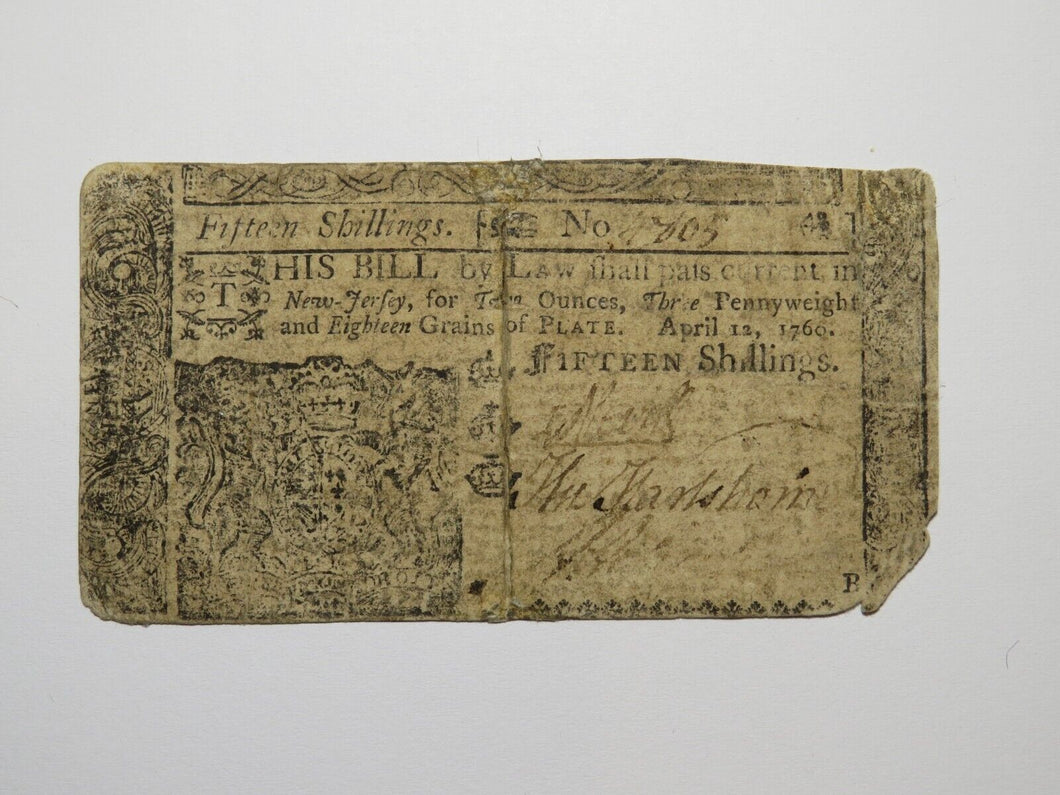 Fifteen Shillings. No 4805
THIS BILL by LAW ſhall paſs current in
New-Jerſey, for Two Ounces, Three Pennyweight
and Eighteen Grains of PLATE. April 12, 1760.
FIFTEEN Shillings.
Hartshorne
B